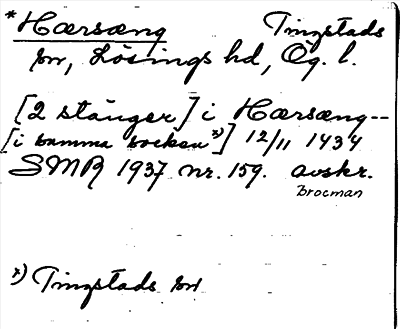 *Hærsæng Tingstads
sn, Lösings hd, Ög. l.
[2 stånger] i Hærsæng--
[i samma socken *)] 12/11 1434
SMR 1937 nr. 159. avskr.
Brocman
*) Tingstads sn